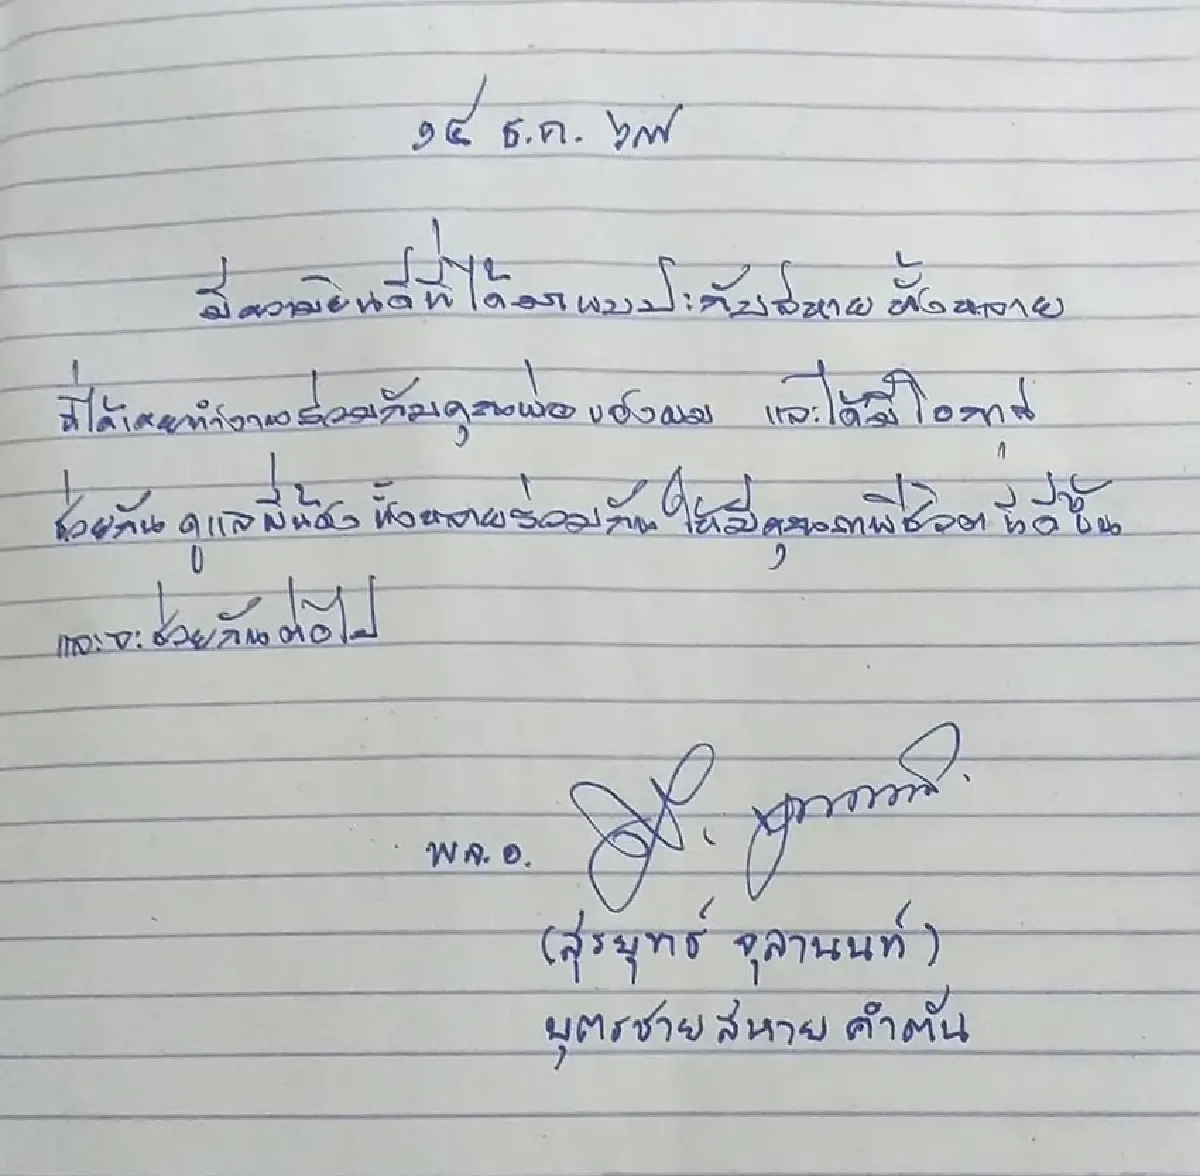 ๑๔ ธ.ค. ๖๗
มีความยินดีที่ได้มาพบปะกับสหายทั้งหลาย
ที่ได้เคยทำงานร่วมกับคุณพ่อของผม และได้มีโอกาส
ช่วยกันดูแลพี่น้องทั้งหลายร่วมกันให้มีคุณภาพชีวิตที่ดีขึ้น
และจะช่วยกันต่อไป
พล.อ.
(สุรยุทธ์ จุลานนท์)
บุตรชายสหายคำตัน